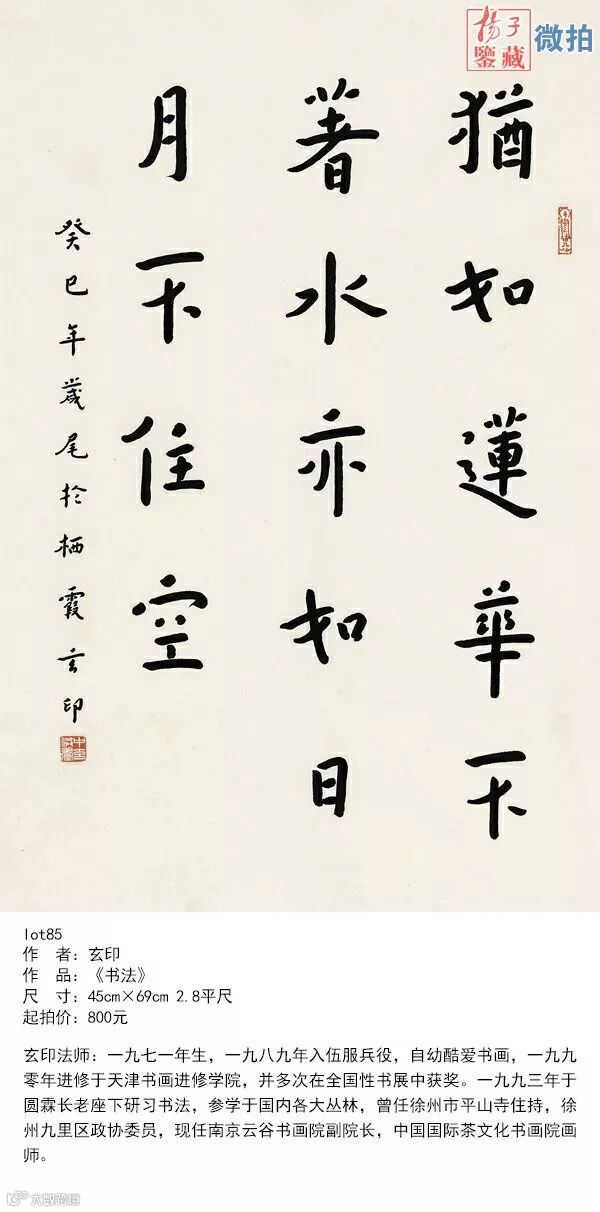 揚子
鑒藏
微拍
猶如蓮華不
著水亦如日
月不住空
癸巳年歲尾於栖霞玄印
lot85
作 者：玄印
作 品：《书法》
尺 寸：45cm×69cm 2.8平尺
起拍价：800元
玄印法师：一九七一年生，一九八九年入伍服兵役，自幼酷爱书画，一九九
零年进修于天津书画进修学院，并多次在全国性书展中获奖。一九九三年于
圆霖长老座下研习书法，参学于国内各大丛林，曾任徐州市平山寺住持，徐
州九里区政协委员，现任南京云谷书画院副院长，中国国际茶文化书画院画
师。
大数跨境